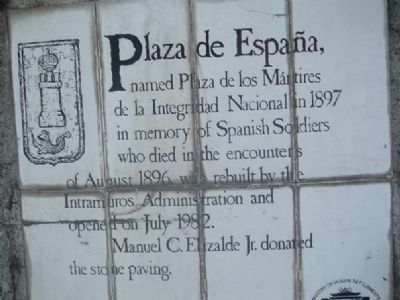 Plaza de España,
named Plaza de los Mártires
de la Integridad Nacional in 1897
in memory of Spanish Soldiers
who died in the encounters
of August 1896, was rebuilt by the
Intramuros Administration and
opened on July 1982.
Manuel C. Elizalde Jr. donated
the stone paving.
MINISTRY OF HUMAN SETTLEMENTS